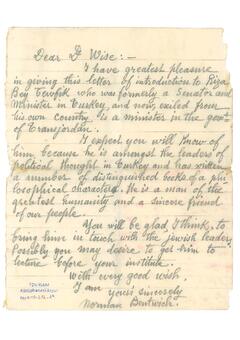 Dear Dr Wise :—
I have greatest pleasure
in giving this letter of introduction to Riza
Bey Tevfik who was formerly a Senator and
Minister in Turkey, and now, exiled from
his own country is a minister in the govt
of Transjordan.
I expect you will know of
him, because he is amongst the leaders of
political thought in Turkey and has written
a number of distinguished books of a phi-
losophical character. He is a man of the
greatest humanity and a sincere friend
of our people.
You will be glad, I think, to
bring him in touch with the Jewish leaders.
Possibly you may desire to get him to
lecture before your institute.
With every good wish
I am
yours sincerely
Norman Bentwich.